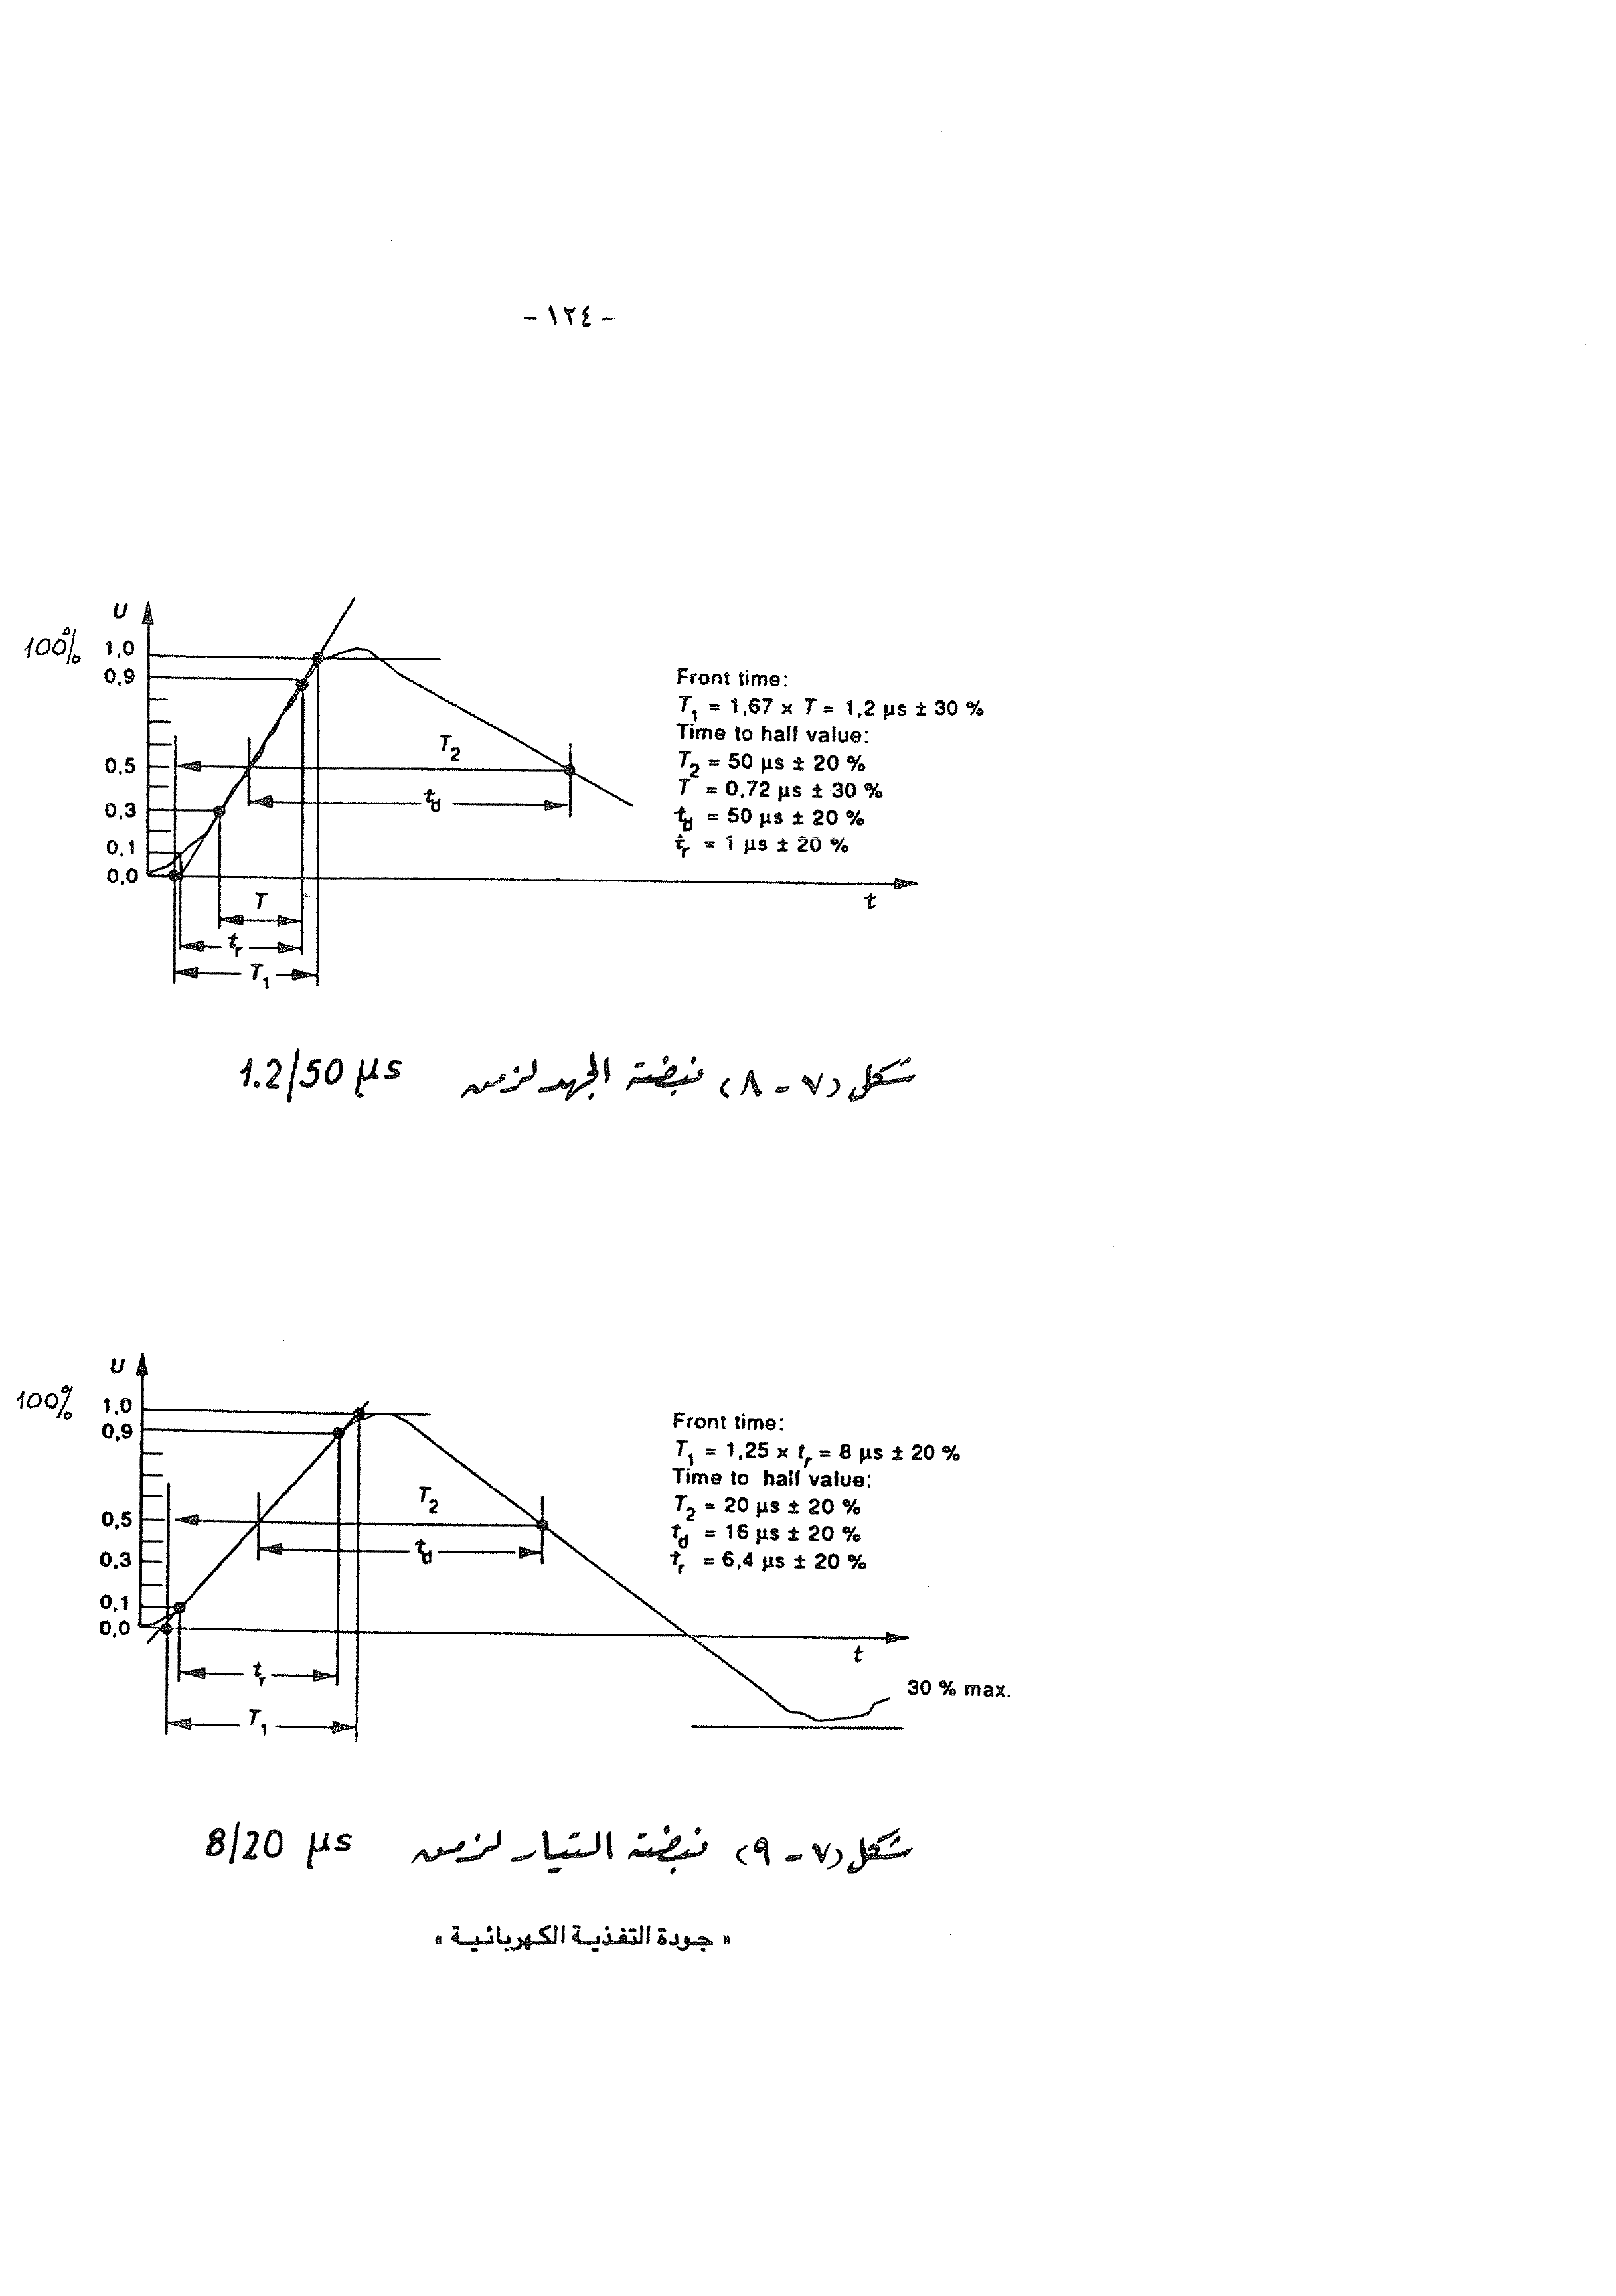 - ١٢٤ -
U
100%
1,0
0,9
0,5
0,3
0,1
0,0
T2
td
T
tr
T1
t
Front time:
T1 = 1,67 x T = 1,2 µs ± 30 %
Time to half value:
T2 = 50 µs ± 20 %
T = 0,72 µs ± 30 %
td = 50 µs ± 20 %
tr = 1 µs ± 20 %
شكل (٧ - ٨) نبضة الجهد لزمن 1.2/50 µs
U
100%
1,0
0,9
0,5
0,3
0,1
0,0
T2
td
tr
T1
t
30 % max.
Front time:
T1 = 1,25 x tr = 8 µs ± 20 %
Time to half value:
T2 = 20 µs ± 20 %
td = 16 µs ± 20 %
tr = 6,4 µs ± 20 %
شكل (٧ - ٩) نبضة التيار لزمن 8/20 µs
« جودة التغذية الكهربائية »